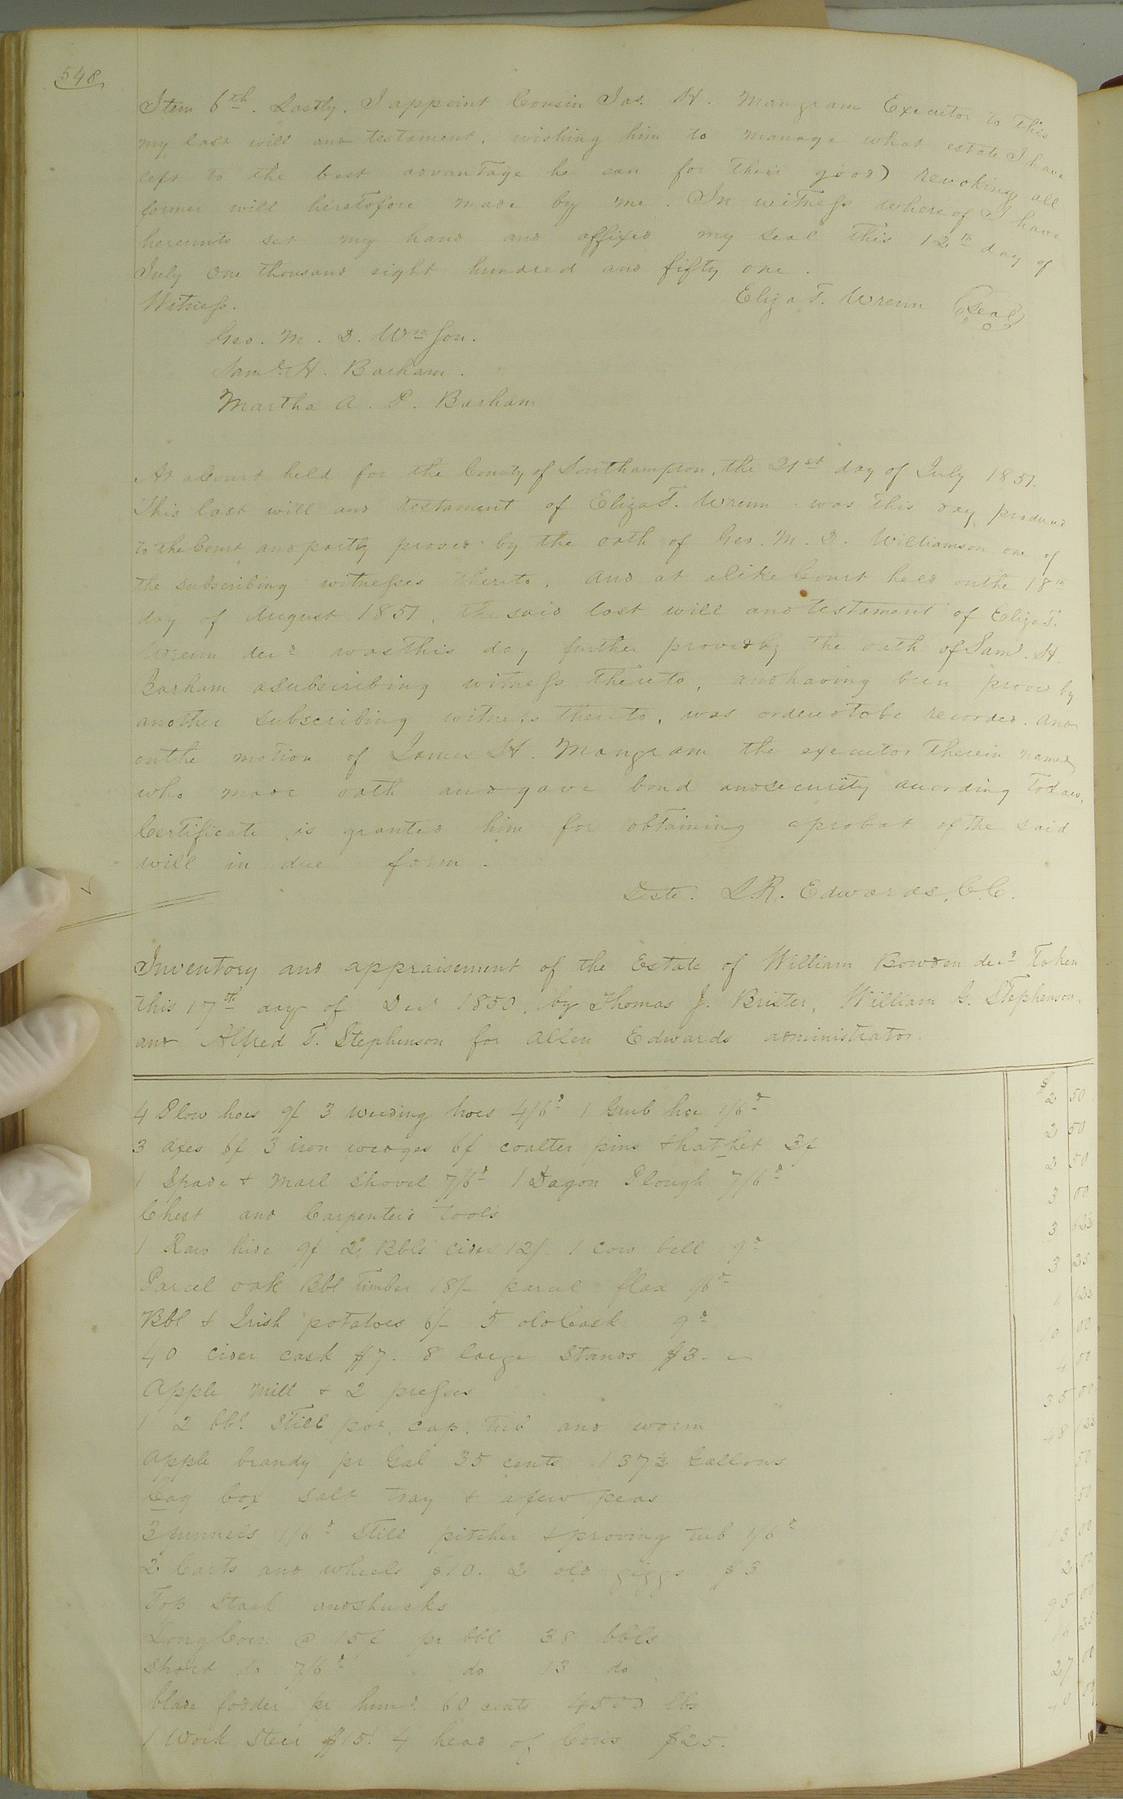 548
Item 6th. Lastly. I appoint Cousin Jas. H. Mangram Executor to this
my last will and testament, wishing him to manage what estate I have
left to the best advantage he can for their good) revoking all
former will heretofore made by me. In witness whereof I have
hereunto set my hand and affixed my seal this 12th day of
July One thousand eight hundred and fifty one.
Witness. Eliza T. Wrenn (Seal)
Geo. M. D. Wmson.
Saml. H. Barham.
Martha A. P. Barham
At a Court held for the County of Southampton, the 21st day of July 1851.
This last will and testament of Eliza T. Wrenn was this day produced
to the Court and partly proved by the oath of Geo. M. D. Williamson one of
the subscribing witnesses thereto. And at alike Court held on the 18th
day of August 1851, the said last will and testament of Eliza T.
Wrenn decd was this day further proved by the oath of Saml. H.
Barham a subscribing witness thereto, and having been proved by
another subscribing witness thereto, was ordered to be recorded. And
on the motion of James H. Mangram the executor therein named
who made oath and gave bond and security according to law,
Certificate is granted him for obtaining a probat of the said
will in due form.
Teste. L. R. Edwards, C.C.
Inventory and appraisement of the Estate of William Bowden decd Taken
this 17th day of Decr 1850, by Thomas J. Brister, William G. Stephenson,
and Alfred T. Stephenson for Allen Edwards administrator.
4 Plow hoes 9/ 3 weeding hoes 4/6d 1 Grub hoe 1/6d $2 50
3 axes 6/ 3 iron wedges 6/ coalter pins & hatchet 3/ 2 50
1 Spade & Marl shovel 7/6d 1 Dagon Plough 7/6d 2 50
Chest and Carpenter's tools 3 00
1 Raw hide 9/ 2 Bbls cider 12/. 1 cow bell 9d 3
Parcel oak Bbl timber 18/ parcel flax 3 25
Bbl & Irish potatoes 6/ 5 old Cask 9d 1
40 cider cask $7. 8 large Stands $3. 10 00
Apple Mill & 2 presses 4 50
1 2 bbl. Still pot, cap, tub and worm 35 00
Apple brandy pr Gal 35 cents 137½ Gallons 48
box salt tray & a few peas 50
3 funnels 1/6d Still pitcher & proving tub 1/6d 50
2 Carts and wheels $10. 2 old giggs $3 13 00
Top Stack and shucks 2 00
Long Corn @ 15/ pr bbl 38 bbls 95 00
Short do 7/6d do 13 do 16 25
blade fodder pr hund. 60 cents 4500 lbs 27 00
1 Work Steer $15. 4 head of Cows $25. 40